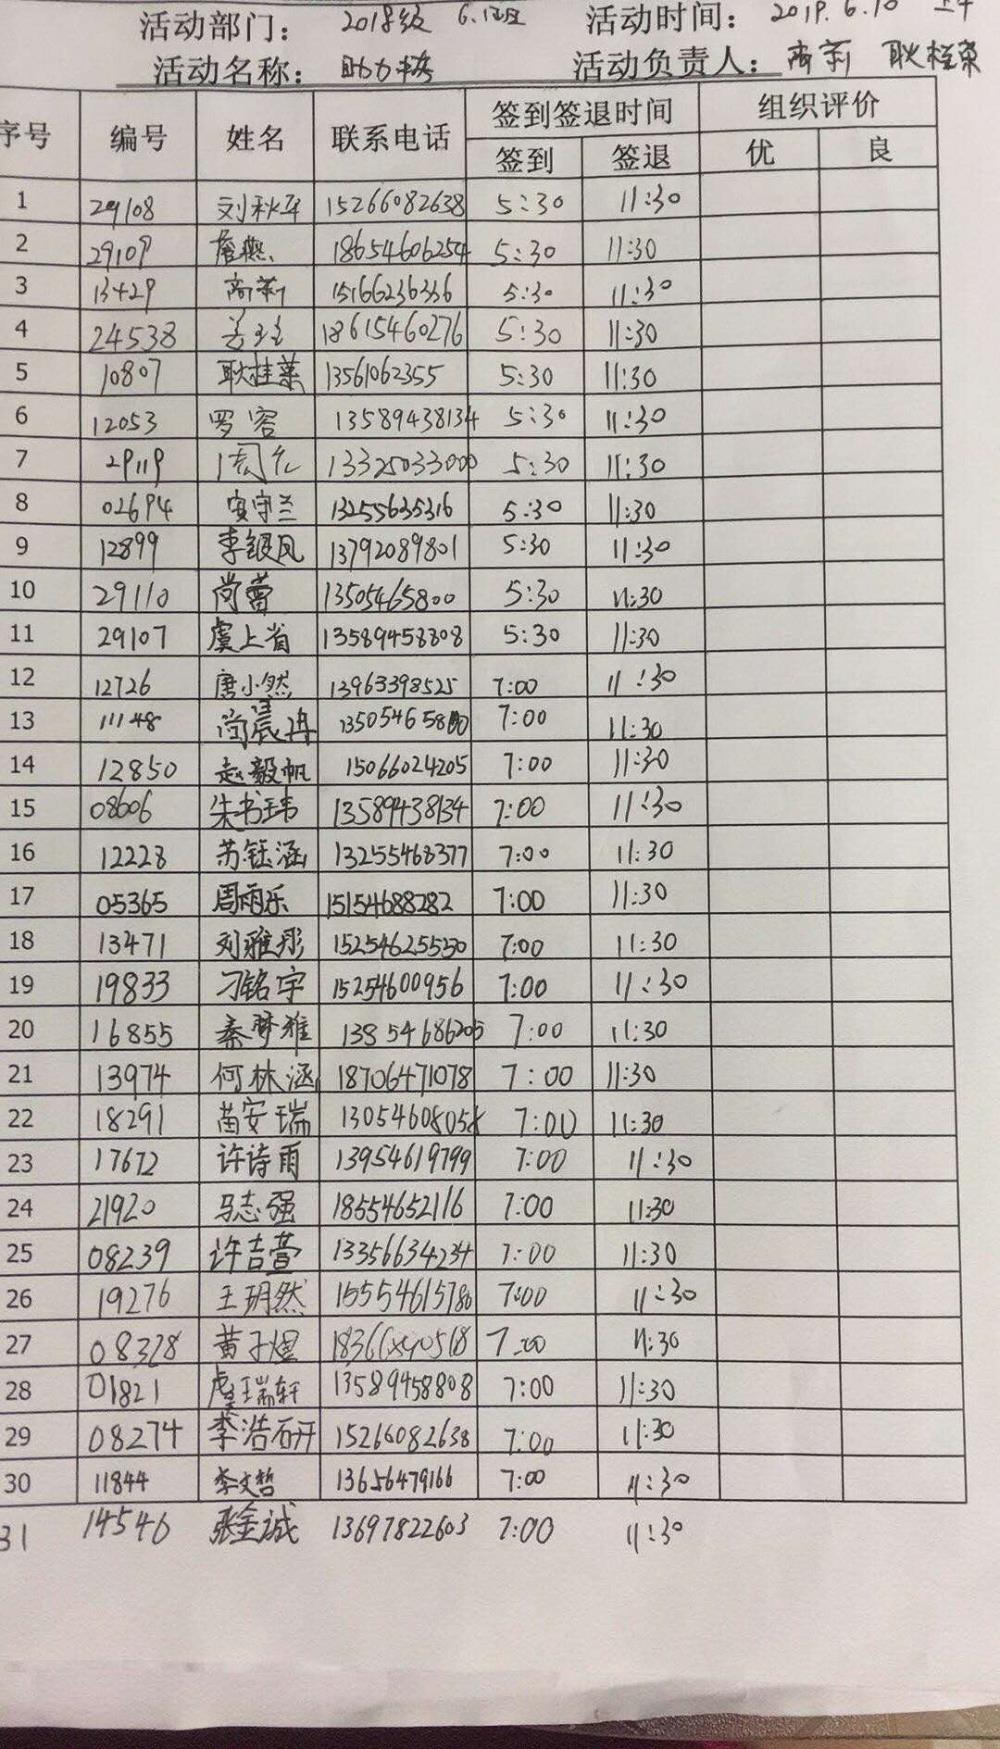 活动部门： 2018级 6.12班 活动时间： 2019.6.10 上午
活动名称： 助力中考 活动负责人： 商莉 耿桂荣
序号 编号 姓名 联系电话 签到签退时间 组织评价
签到 签退 优 良
1 29108 刘秋平 15266082638 5:30 11:30
2 29109 18654606254 5:30 11:30
3 13429 商莉 15166236336 5:30 11:30
4 24538 18615460276 5:30 11:30
5 10807 耿桂荣 13561062355 5:30 11:30
6 12053 罗容 13589438134 5:30 11:30
7 29119 13325033000 5:30 11:30
8 02694 安守兰 13255635316 5:30 11:30
9 12899 李银凤 13792089801 5:30 11:30
10 29110 尚蕾 13505465800 5:30 11:30
11 29107 虞上省 13589458808 5:30 11:30
12 12726 唐小然 13963398525 7:00 11:30
13 11148 尚宸冉 13505465800 7:00 11:30
14 12850 赵毅帆 15066024205 7:00 11:30
15 08606 朱书玮 13589438134 7:00 11:30
16 12228 苏钰涵 13255468377 7:00 11:30
17 05365 周雨乐 15154688282 7:00 11:30
18 13471 刘雅彤 15254625550 7:00 11:30
19 19833 刁铭宇 15254600956 7:00 11:30
20 16855 秦梦雅 13854686205 7:00 11:30
21 13974 何林涵 18706471078 7:00 11:30
22 18291 苗安瑞 13054608058 7:00 11:30
23 17672 许诗雨 13954619799 7:00 11:30
24 21920 马志强 18554652116 7:00 11:30
25 08239 许吉萱 13356634234 7:00 11:30
26 19276 王玥然 15554615780 7:00 11:30
27 08328 黄子煜 7:00 11:30
28 01821 虞瑞轩 13589458808 7:00 11:30
29 08274 李浩研 15266082638 7:00 11:30
30 11844 李文哲 13656479166 7:00 11:30
31 14546 张金诚 13697822603 7:00 11:30